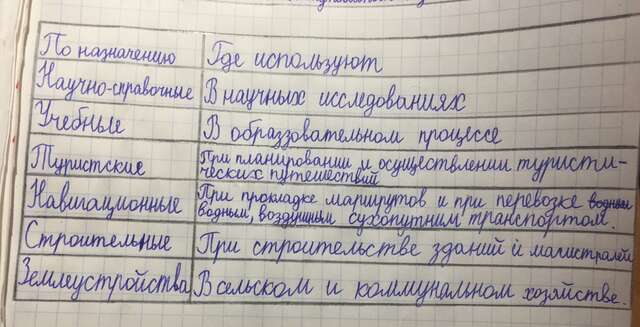 По назначению Где используют
Научно-справочные В научных исследованиях
Учебные В образзовательном процессе
Туристские При планировании и осуществлении туристи-
ческих путешествий
Навигационные При прокладке маршрутов и при перевозке водным
водным, воздушным сухопутним транспортом.
Строительные При строительстве зданий и магистралей
Землеустройства В сельском и коммунальном хозяйстве.